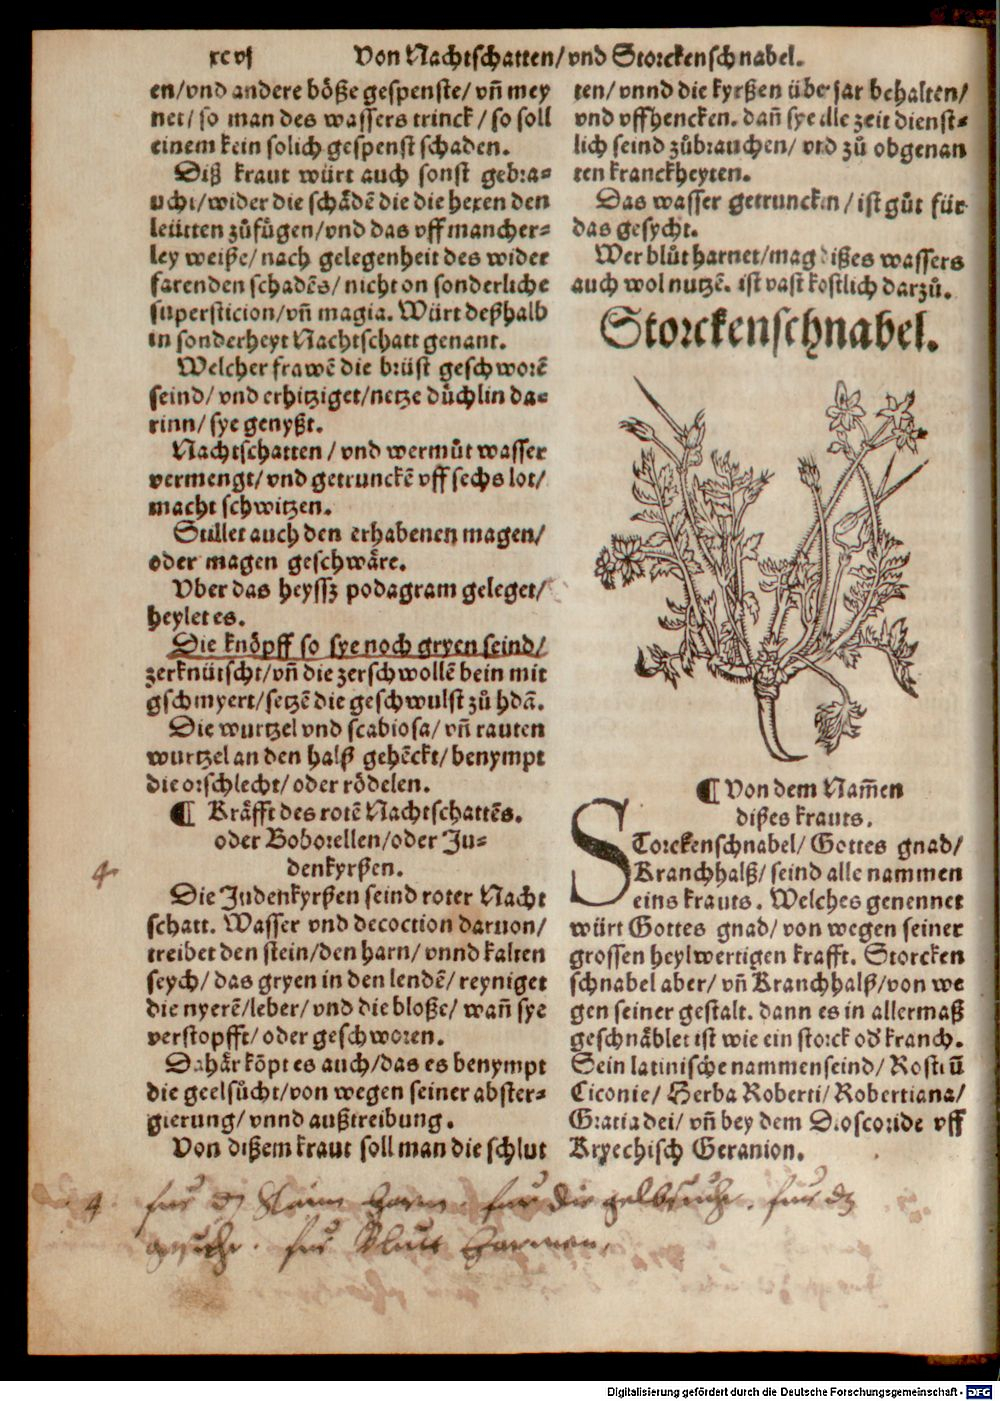 xcvj Von Nachtschatten/vnd Storckenschnabel.
en/vnd andere böße gespenste/vñ mey
net/so man des wassers trinck/so soll
einem kein solich gespenst schaden.
Diß kraut würt auch sonst gebra⸗
ucht/wider die schådẽ die die hexen den
leütten zůfůgen/vnd das vff mancher⸗
ley weiße/nach gelegenheit des wider
farenden schadẽs/nicht on sonderliche
supersticion/vñ magia. Würt deßhalb
in sonderheyt Nachtschatt genant.
Welcher frawẽ die brüst geschworẽ
seind/vnd erhitziget/netze důchlin da⸗
rinn/sye genyßt.
Nachtschatten/vnd wermůt wasser
vermengt/vnd getrunckẽ vff sechs lot/
macht schwitzen.
Stillet auch den erhabenen magen/
oder magen geschwåre.
Vber das heyssz podagram geleget/
heylet es.
Die knöpff so sye noch gryen seind/
zerknütscht/vñ die zerschwollẽ bein mit
gschmyert/setzẽ die geschwulst zů hãd.
Die wurtzel vnd scabiosa/vñ rauten
wurtzel an den halß gehẽckt/benympt
die orschlecht/oder rödelen.
¶ Kråfft des rotẽ Nachtschattẽs.
oder Boborellen/oder Ju⸗
denkyrßen.
4
Die Judenkyrßen seind roter Nacht
schatt. Wasser vnd decoction daruon/
treibet den stein/den harn/vnnd kalten
seych/das gryen in den lendẽ/reyniget
die nyerẽ/leber/vnd die bloße/wañ sye
verstopfft/oder geschworen.
Dahår köpt es auch/das es benympt
die geelsůcht/von wegen seiner abster⸗
gierung/vnnd außtreibung.
Von dißem kraut soll man die schlut
ten/vnnd die kyrßen über jar behalten/
vnd vffhencken. dañ sye alle zeit dienst⸗
lich seind zůbrauchen/vnd zů obgenan
ten kranckheyten.
Das wasser getruncken/ist gůt für
das gesycht.
Wer blůt harnet/mag dißes wassers
auch wol nutzẽ. ist vast kostlich darzů.
Storckenschnabel.
¶ Von dem Nam̃en
dißes krauts.
STorckenschnabel/Gottes gnad/
Kranchhalß/seind alle nammen
eins krauts. Welches genennet
würt Gottes gnad/von wegen seiner
grossen heylwertigen krafft. Storcken
schnabel aber/vñ Kranchhalß/von we
gen seiner gestalt. dann es in allermaß
geschnåblet ist wie ein storck oď kranch.
Sein latinische nammen seind/Rostrũ
Ciconie/Herba Roberti/Robertiana/
Gratia dei/vñ bey dem Dioscoride vff
Kryechisch Geranion.
4 für dz Stain harn. für die gelbsucht. für dz
gesicht. für Blutt harnen.
Digitalisierung gefördert durch die Deutsche Forschungsgemeinschaft - DFG